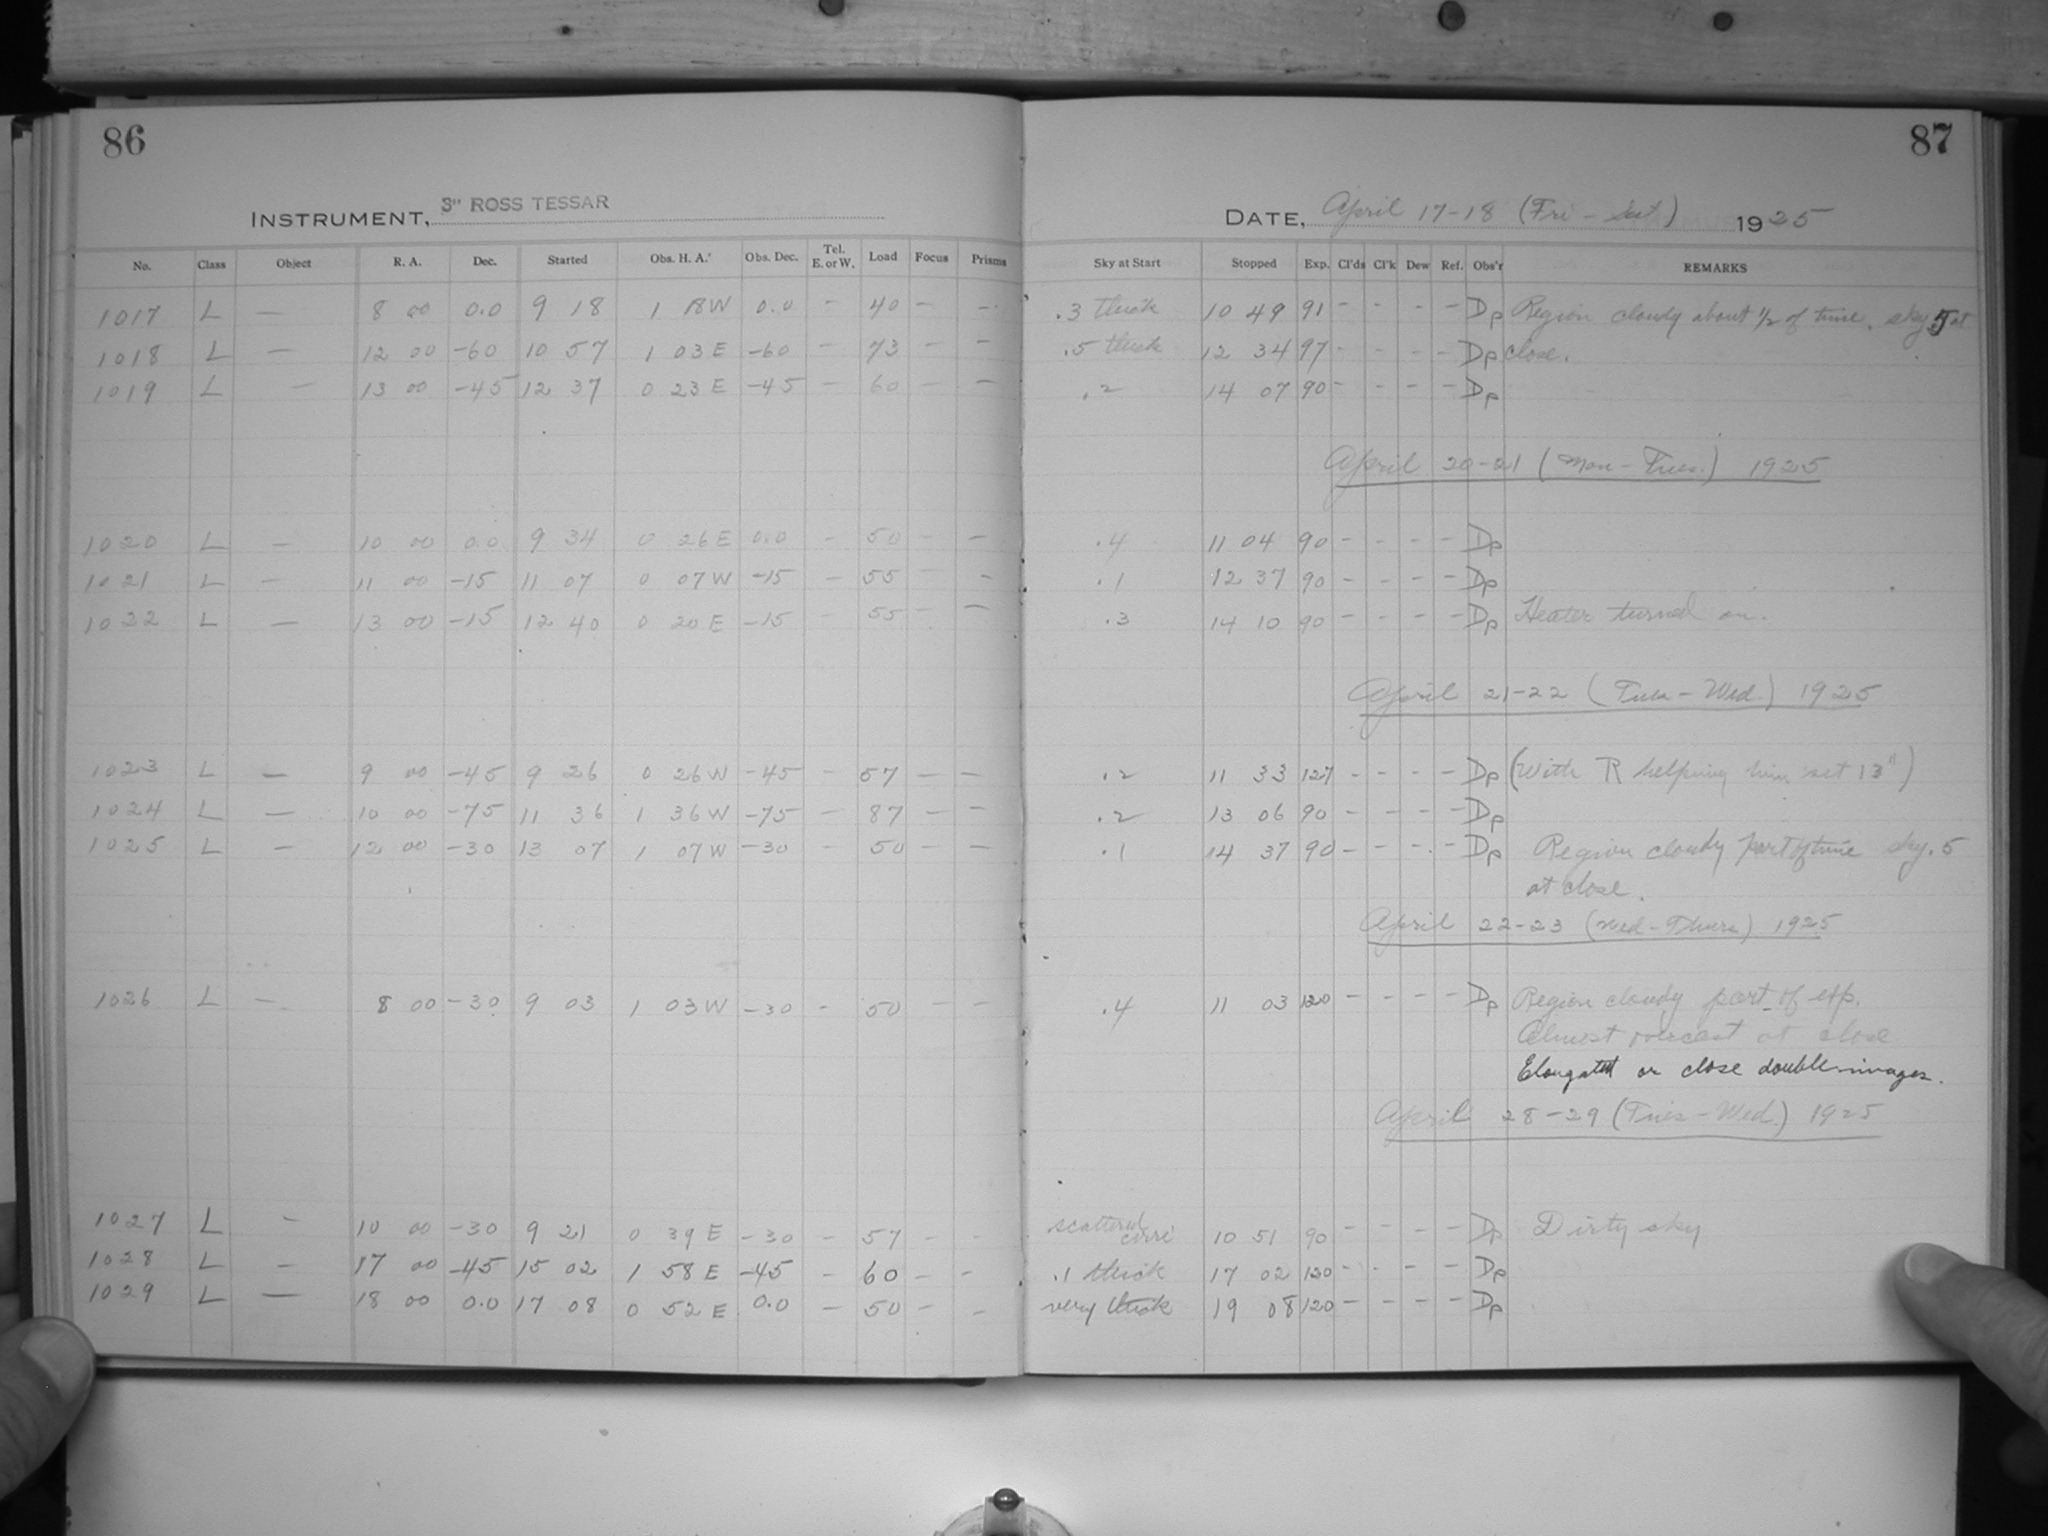 86
INSTRUMENT, 3" ROSS TESSAR
No. Class Object R. A. Dec. Started Obs. H. A. Obs. Dec. Tel. E. or W. Load Focus Prisms
1017 L — 8 00 0.0 9 18 1 18 W 0.0 - 40 — —
1018 L — 12 00 -60 10 57 1 03 E -60 - 73 — —
1019 L — 13 00 -45 12 37 0 23 E -45 - 60 — —
1020 L — 10 00 0.0 9 34 0 26 E 0.0 - 50 — —
1021 L — 11 00 -15 11 07 0 07 W -15 - 55 — —
1022 L — 13 00 -15 12 40 0 20 E -15 - 55 — —
1023 L — 9 00 -45 9 26 0 26 W -45 - 57 — —
1024 L — 10 00 -75 11 36 1 36 W -75 - 87 — —
1025 L — 12 00 -30 13 07 1 07 W -30 - 50 — —
1026 L — 8 00 -30 9 03 1 03 W -30 - 50 — —
1027 L — 10 00 -30 9 21 0 39 E -30 - 57 - -
1028 L — 17 00 -45 15 02 1 58 E -45 - 60 - -
1029 L — 18 00 0.0 17 08 0 52 E 0.0 - 50 - -
87
DATE, April 17-18 (Fri - Sat) 1925
Sky at Start Stopped Exp. Cl'ds Cl'k Dew Ref. Obs'r REMARKS
.3 thick 10 49 91 - - - - Dp Region cloudy about 1/2 of time. sky .5 at
.5 thick 12 34 97 - - - - Dp close.
.2 14 07 90 - - - - Dp
April 20-21 (Mon - Tues.) 1925
.4 11 04 90 - - - - Dp
.1 12 37 90 - - - - Dp
.3 14 10 90 - - - - Dp Heater turned on.
April 21-22 (Tues - Wed.) 1925
.2 11 33 127 - - - - Dp (With R helping him set 13")
.2 13 06 90 - - - - Dp
.1 14 37 90 - - - - Dp Region cloudy part of time sky .5
at close.
April 22-23 (Wed - Thurs) 1925
.4 11 03 120 - - - - Dp Region cloudy part of exp.
Almost overcast at close
Elongated or close double images.
April 28-29 (Tues - Wed.) 1925
scattered
cirri 10 51 90 - - - - Dp Dirty sky
.1 thick 17 02 120 - - - - Dp
very thick 19 08 120 - - - - Dp